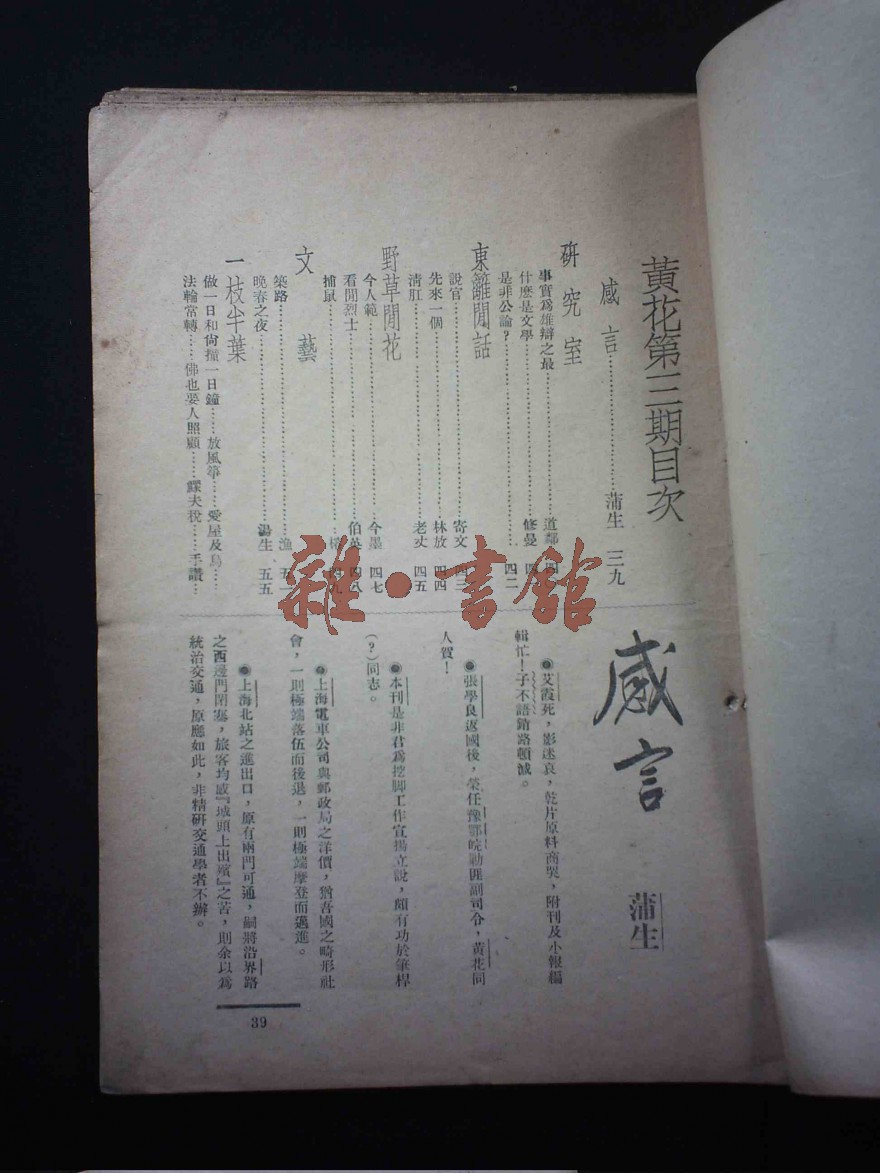 黃花第三期目次
感言……蒲生 三九
研究室
事實為雄辯之最……道鄰
什麽是文學……修曼
是非公論?……四二
東籬閒話
說官……寄文 四三
先來一個……林放 四四
清肛……老丈 四五
野草閒花
今人範……今墨 四七
看閒烈士……伯英 四八
捕鼠
文藝
築路……漁
晚春之夜……湯生 五五
一枝半葉
做一日和尙撞一日鐘……放風箏……愛屋及烏……
法輪常轉……佛也要人照顧……鰥夫稅……手讚……
感言
蒲生
●艾霞死,影迷哀,乾片原料商哭,附刊及小報編
輯忙!子不語銷路頓減。
●張學良返國後,榮任豫鄂皖勦匪副司令,黃花同
人賀!
●本刊是非君爲挖脚工作宣揚立說,頗有功於筆桿
(?)同志。
●上海電車公司與郵政局之洋價,猶吾國之畸形社
會,一則極端落伍而後退,一則極端摩登而邁進。
●上海北站之進出口,原有兩門可通,嗣將沿界路
之西邊門閉塞,旅客均感『城頭上出殯』之苦,則余以爲
統治交通,原應如此,非精研交通學者不辦。
39
雜·書館